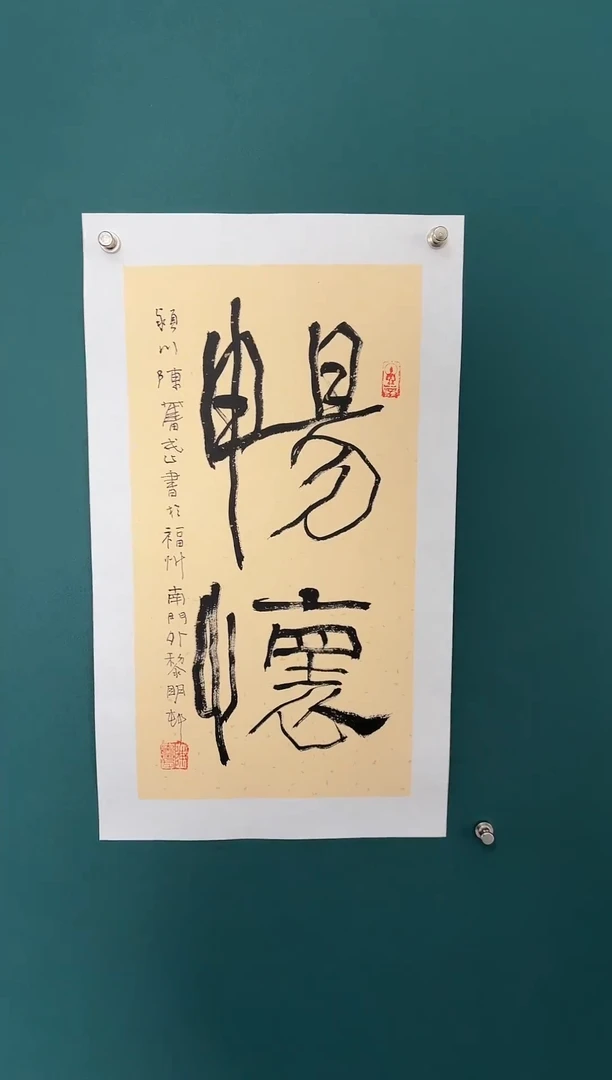 暢懷
潁川陳奮武書於福州南門外黎明邨